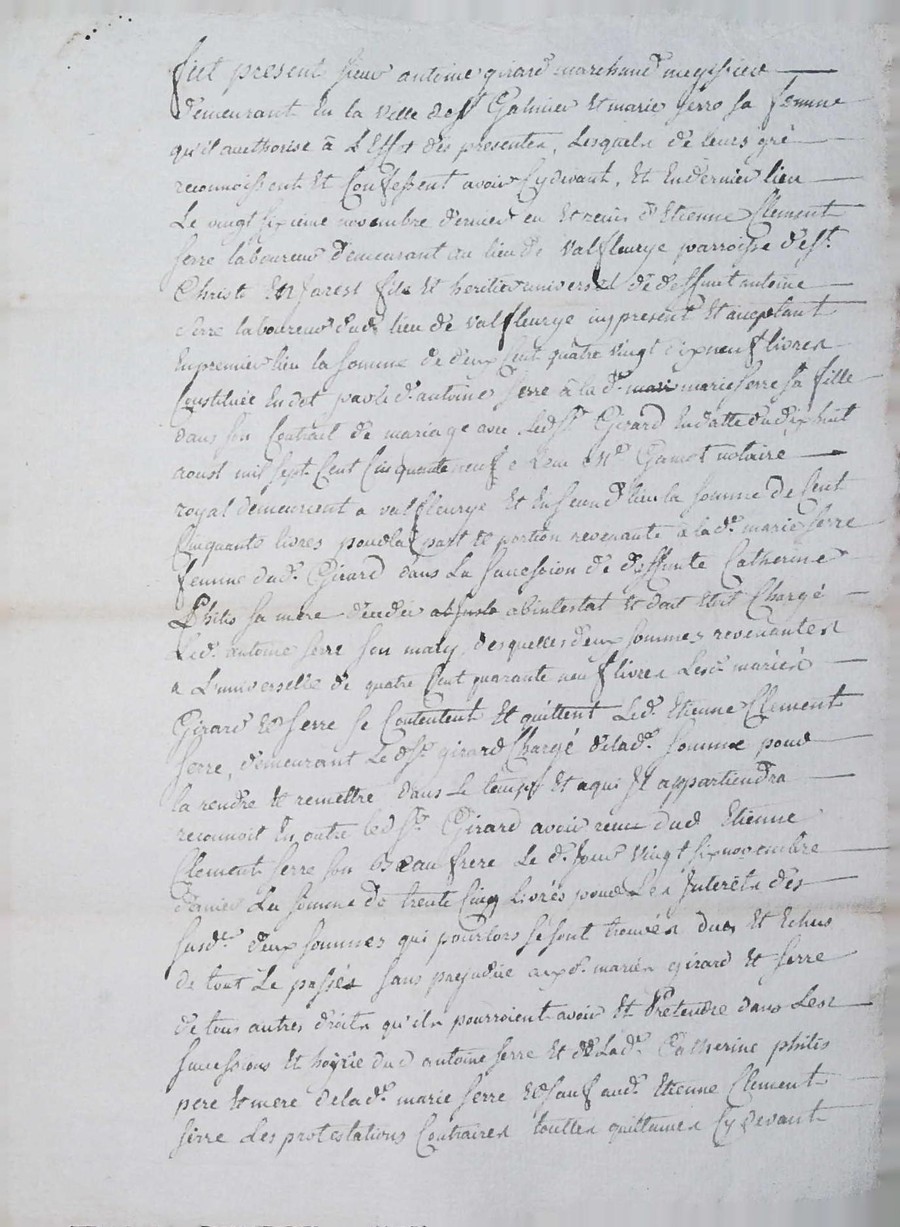 fut present sieur antoine girard marchand megissier
demeurant en la ville de st Galmier et marie serre sa femme
qu'il authorise à L'Effet des presentes, Lesquels de leurs gré
reconnoissent et Confessent avoir Cydevant, et En dernier lieu
Le vingt sixieme novembre dernier eu et receu d'Etienne Clement
serre laboureur demeurant au lieu de valfleurye parroisse de st
Christo En forest fils et heritier universel de deffunt antoine
serre laboureur dud. lieu de valfleurye icy present et acceptant
En premier lieu la somme de deux Cent quatre vingt dix neuf livres
Constituée En dot par led. antoine serre à la de. marie serre sa fille
dans son Contrait de mariage avec led sr. Girard En datte du dix huit
aoust mil sept Cent Cinquante neuf receu Me. Gamot notaire
royal demeurant a valfleurye et En second lieu la somme de Cent
Cinquante livres pour la part et portion revenante à la de. marie serre
femme dud. Girard dans La succession de deffunte Catherine
Philis sa mere decedée abintestat et dont Etoit Chargé
Led. antoine serre son mary, desquelles deux sommes revenantes
a L'universelle de quatre Cent quarante neuf livres Lesd. mariés
Girard et serre se Contentent et quittent Led. Etienne Clement
serre, demeurant Led sr. girard Chargé de lade. somme pour
la rendre et remettre dans Le temps et a qui Il appartiendra
reconnoit En outre led sr. Girard avoir receu dud Etienne
Clement serre son Beaufrere Le d. Jour vingt six novembre
dernier La somme de trente Cinq Livres pour Les Interêts des
susde. deux sommes qui pour lors se sont trouvés dus et Echus
de tout Le passés sans prejudice auxd. mariés girard et serre
de tous autres droits qu'ils pourroient avoir et Pretendre dans Les
successions et hoyrie dud antoine serre et de Lade. Catherine philis
pere et mere de lade. marie serre et sauf aud. Etienne Clement
serre Les protestations Contraires touttes quittances Cydevant